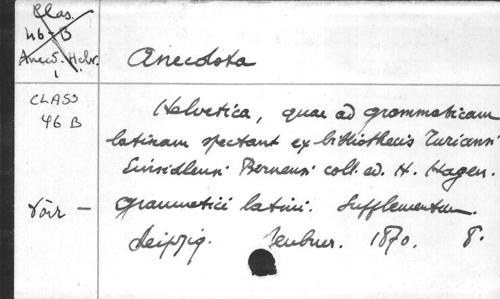 Clas.
46-B
Anecd. Helv.
1
Anecdota
CLASS
46 B
Helvetica, quae ad grammaticam
latinam spectant ex bibliothecis Turicensi
Einsidlensi Bernensi coll. ed. H. Hagen.
voir - Grammatici latini. Supplementum.
Leipzig. Teubner. 1870. 8.